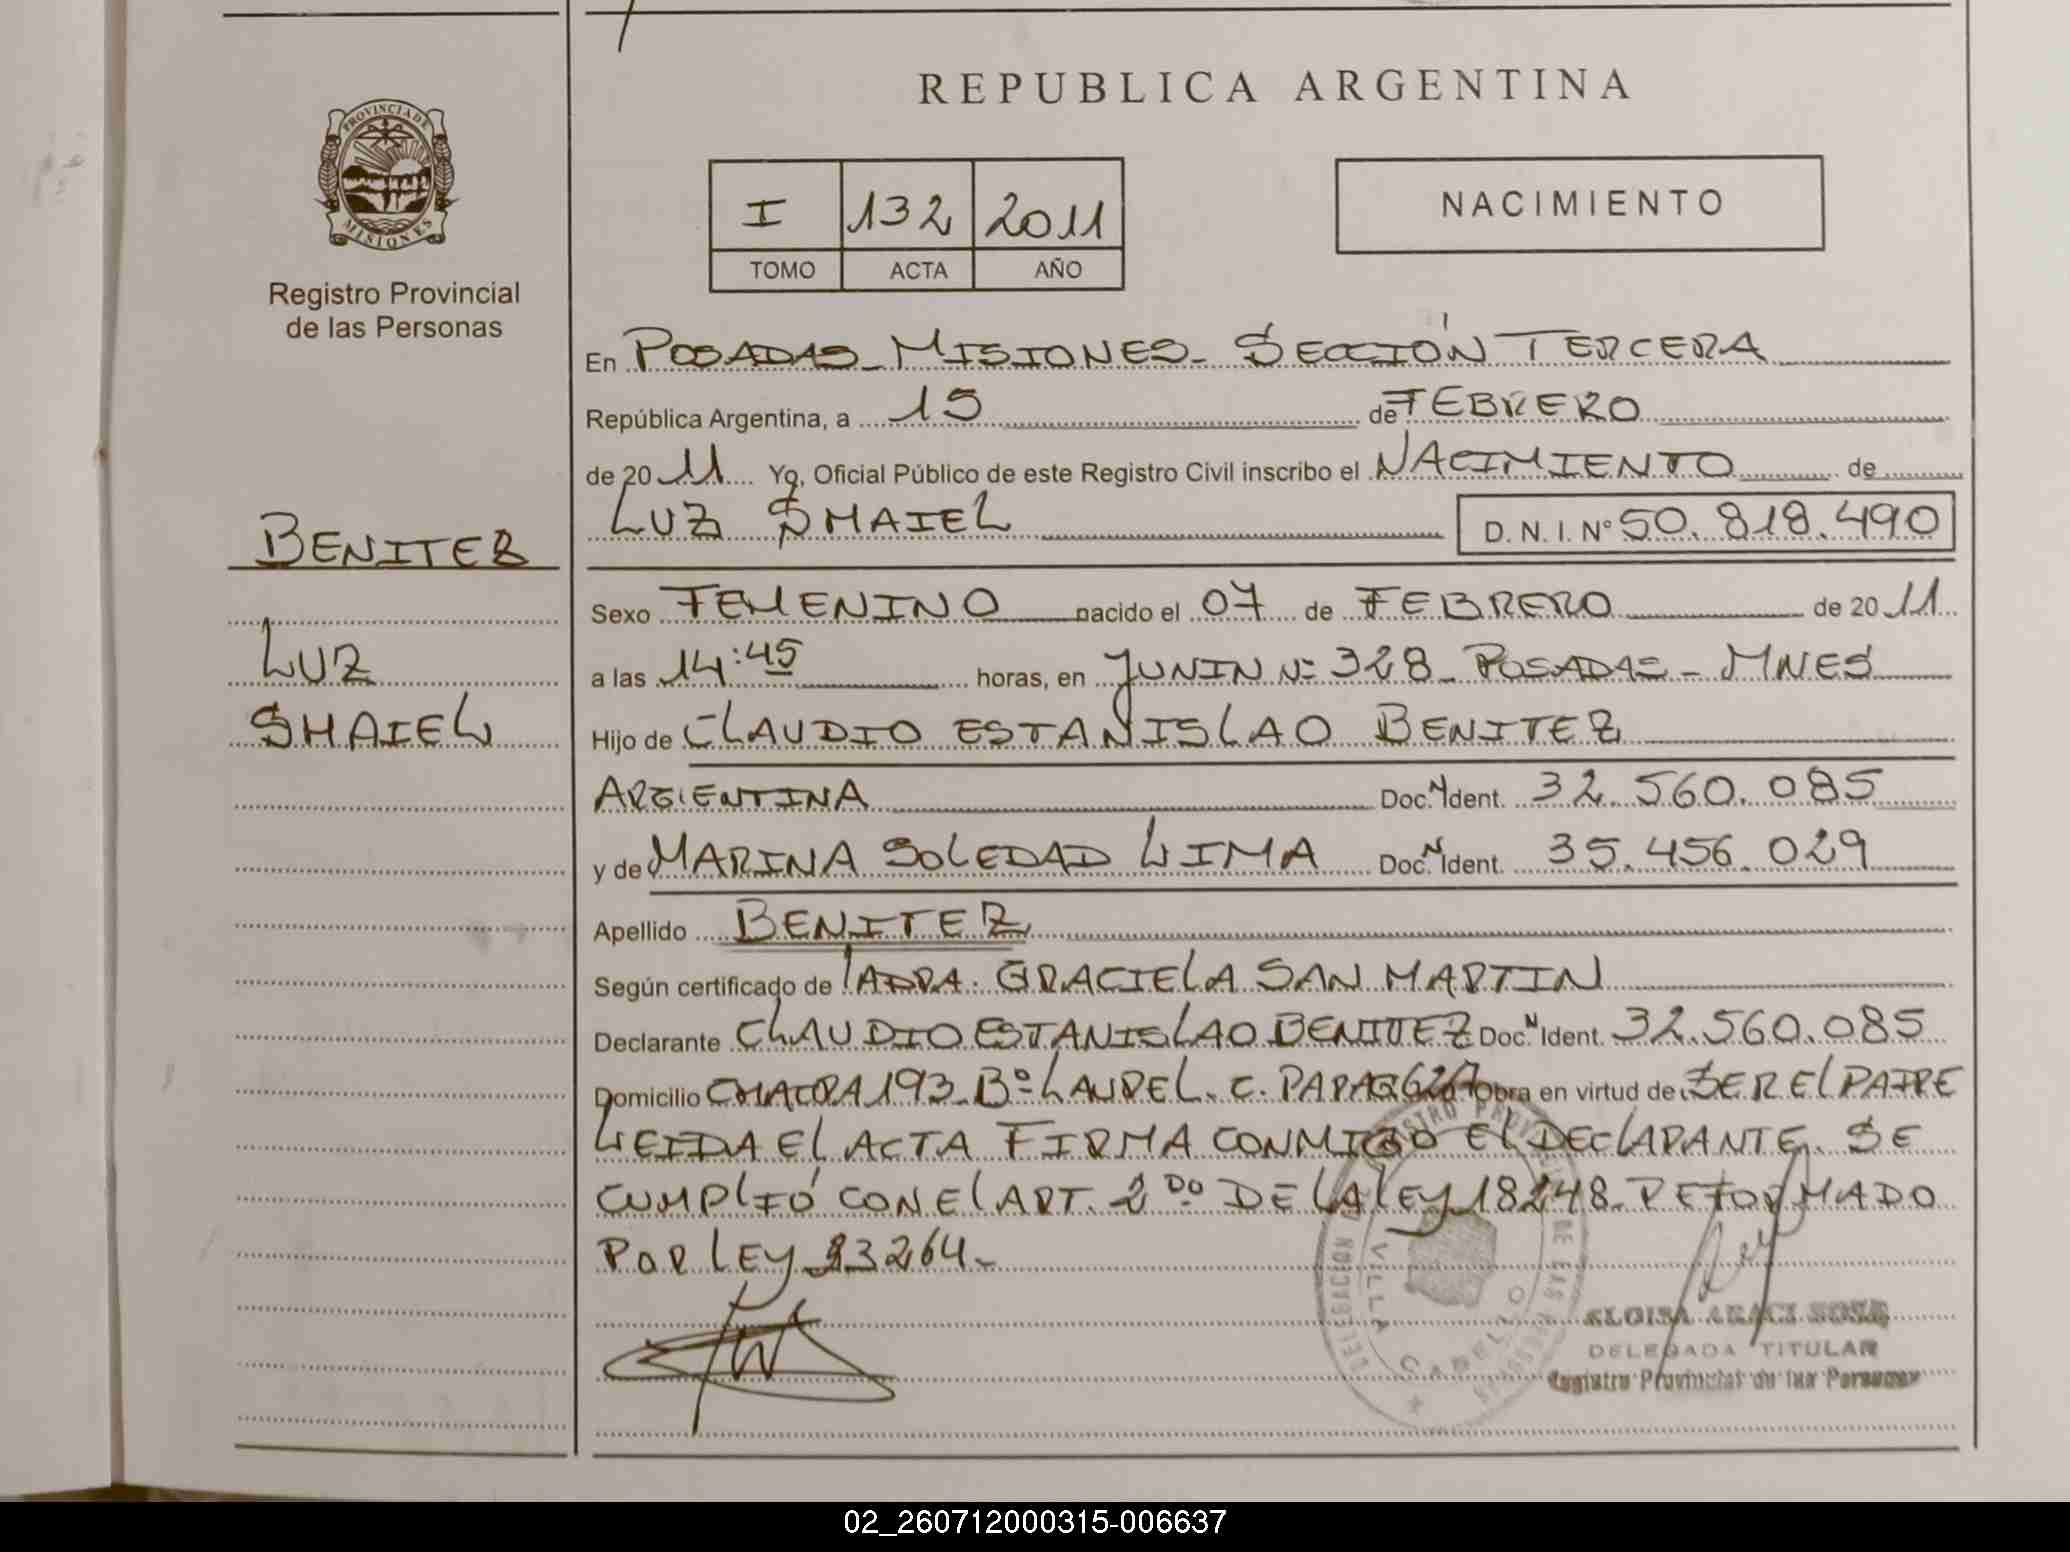 REPUBLICA ARGENTINA
PROVINCIA DE
MISIONES
Registro Provincial
de las Personas
I 132 2011
TOMO ACTA AÑO
NACIMIENTO
En POSADAS_MISIONES_SECCIÓN TERCERA
República Argentina, a 15 de FEBRERO
de 20 11 Yo, Oficial Público de este Registro Civil inscribo el NACIMIENTO de
LUZ SHAIEL D. N. I. Nº 50.818.490
BENITEZ
LUZ
SHAIEL
Sexo FEMENINO nacido el 07 de FEBRERO de 20 11
a las 14:45 horas, en JUNIN Nº 328_POSADAS_MNES
Hijo de CLAUDIO ESTANISLAO BENITEZ
ARGENTINA Doc. N Ident. 32.560.085
y de MARINA SOLEDAD LIMA Doc. N Ident. 35.456.029
Apellido BENITEZ
Según certificado de LA DRA. GRACIELA SAN MARTIN
Declarante CLAUDIO ESTANISLAO BENITEZ Doc. N Ident. 32.560.085
Domicilio CHACRA 193_Bº LAUREL. C. Obra en virtud de SER EL PADRE
LEIDA EL ACTA FIRMA CONMIGO EL DECLARANTE. SE
CUMPLIÓ CON EL ART. 2DO DE LA LEY 18248_REFORMADO
POR LEY 23264_
DELEGACION VILLA CABELLO
REGISTRO PROVINCIAL DE LAS PERSONAS
ELOISA ARACI SOSE
DELEGADA TITULAR
Registro Provincial de las Personas
02_260712000315-006637